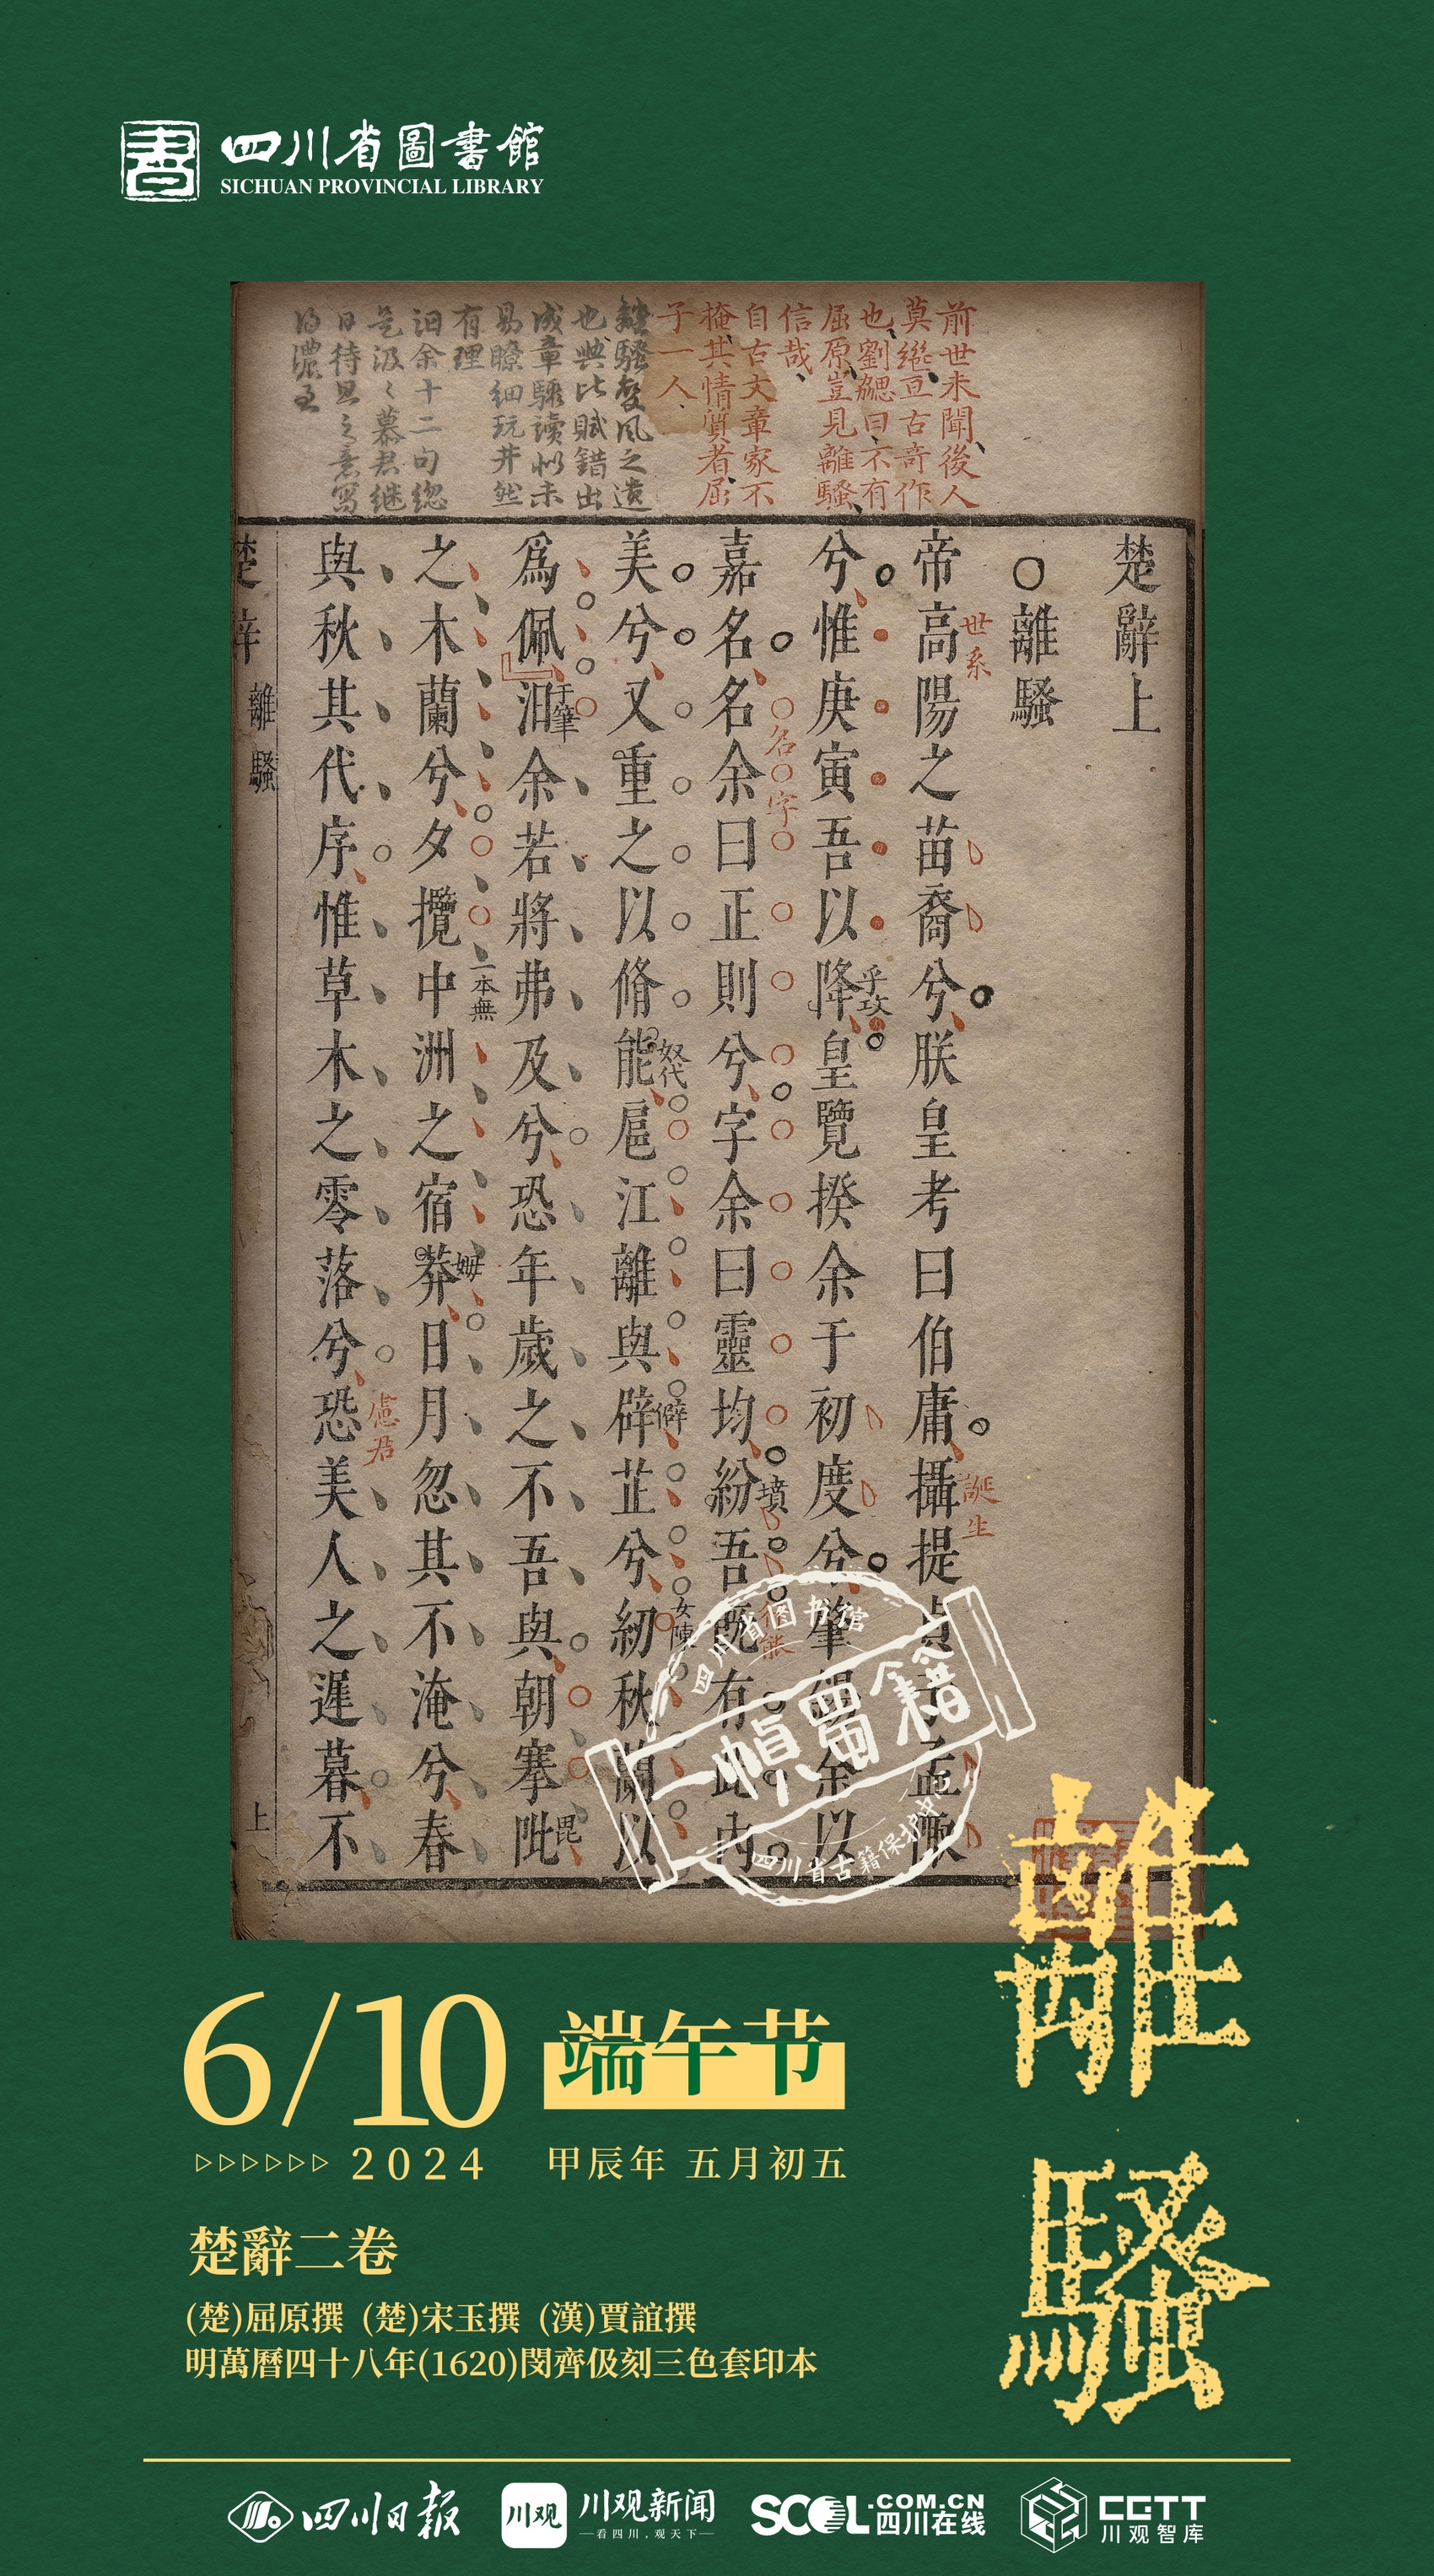 書
四川省圖書館
SICHUAN PROVINCIAL LIBRARY
前世未聞後人
莫繼亘古奇作
也劉勰曰不有
屈原豈見離騷
信哉
自古文章家不
掩其情質者屈
子一人
離騷變風之遺
也興比賦錯出
成章驟讀似未
易瞭細玩井然
有理
汩余十二句總
是汲々慕君継
日待旦之意寫
得濃至
楚辭上
○離騷
帝高陽之苗裔兮朕皇考曰伯庸攝提貞于孟陬
世系
誕生
兮惟庚寅吾以降皇覽揆余于初度兮肇錫余以
乎攻
嘉名名余曰正則兮字余曰靈均紛吾既有此內
名○字
墳
美兮又重之以脩能扈江離與辟芷兮紉秋蘭以
奴代
僻
女陳
為佩汩余若將弗及兮恐年歲之不吾與朝搴阰
于筆
毘
之木蘭兮夕攬中洲之宿莽日月忽其不淹兮春
一本無
姆
與秋其代序惟草木之零落兮恐美人之遲暮不
慮君
楚辭
離騷
上
四川省图书馆
一幀蜀籍
四川省古籍保护中心
離騷
6/10
端午节
2024
甲辰年 五月初五
楚辭二卷
(楚)屈原撰 (楚)宋玉撰 (漢)賈誼撰
明萬曆四十八年(1620)閔齊伋刻三色套印本
四川日报
川观
川观新闻
看四川,观天下
SCOL.COM.CN
四川在线
CGTT
川观智库